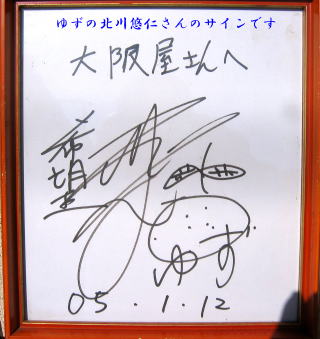 ゆずの北川悠仁さんのサインです
大阪屋さんへ
希望
ゆず
05.1.12